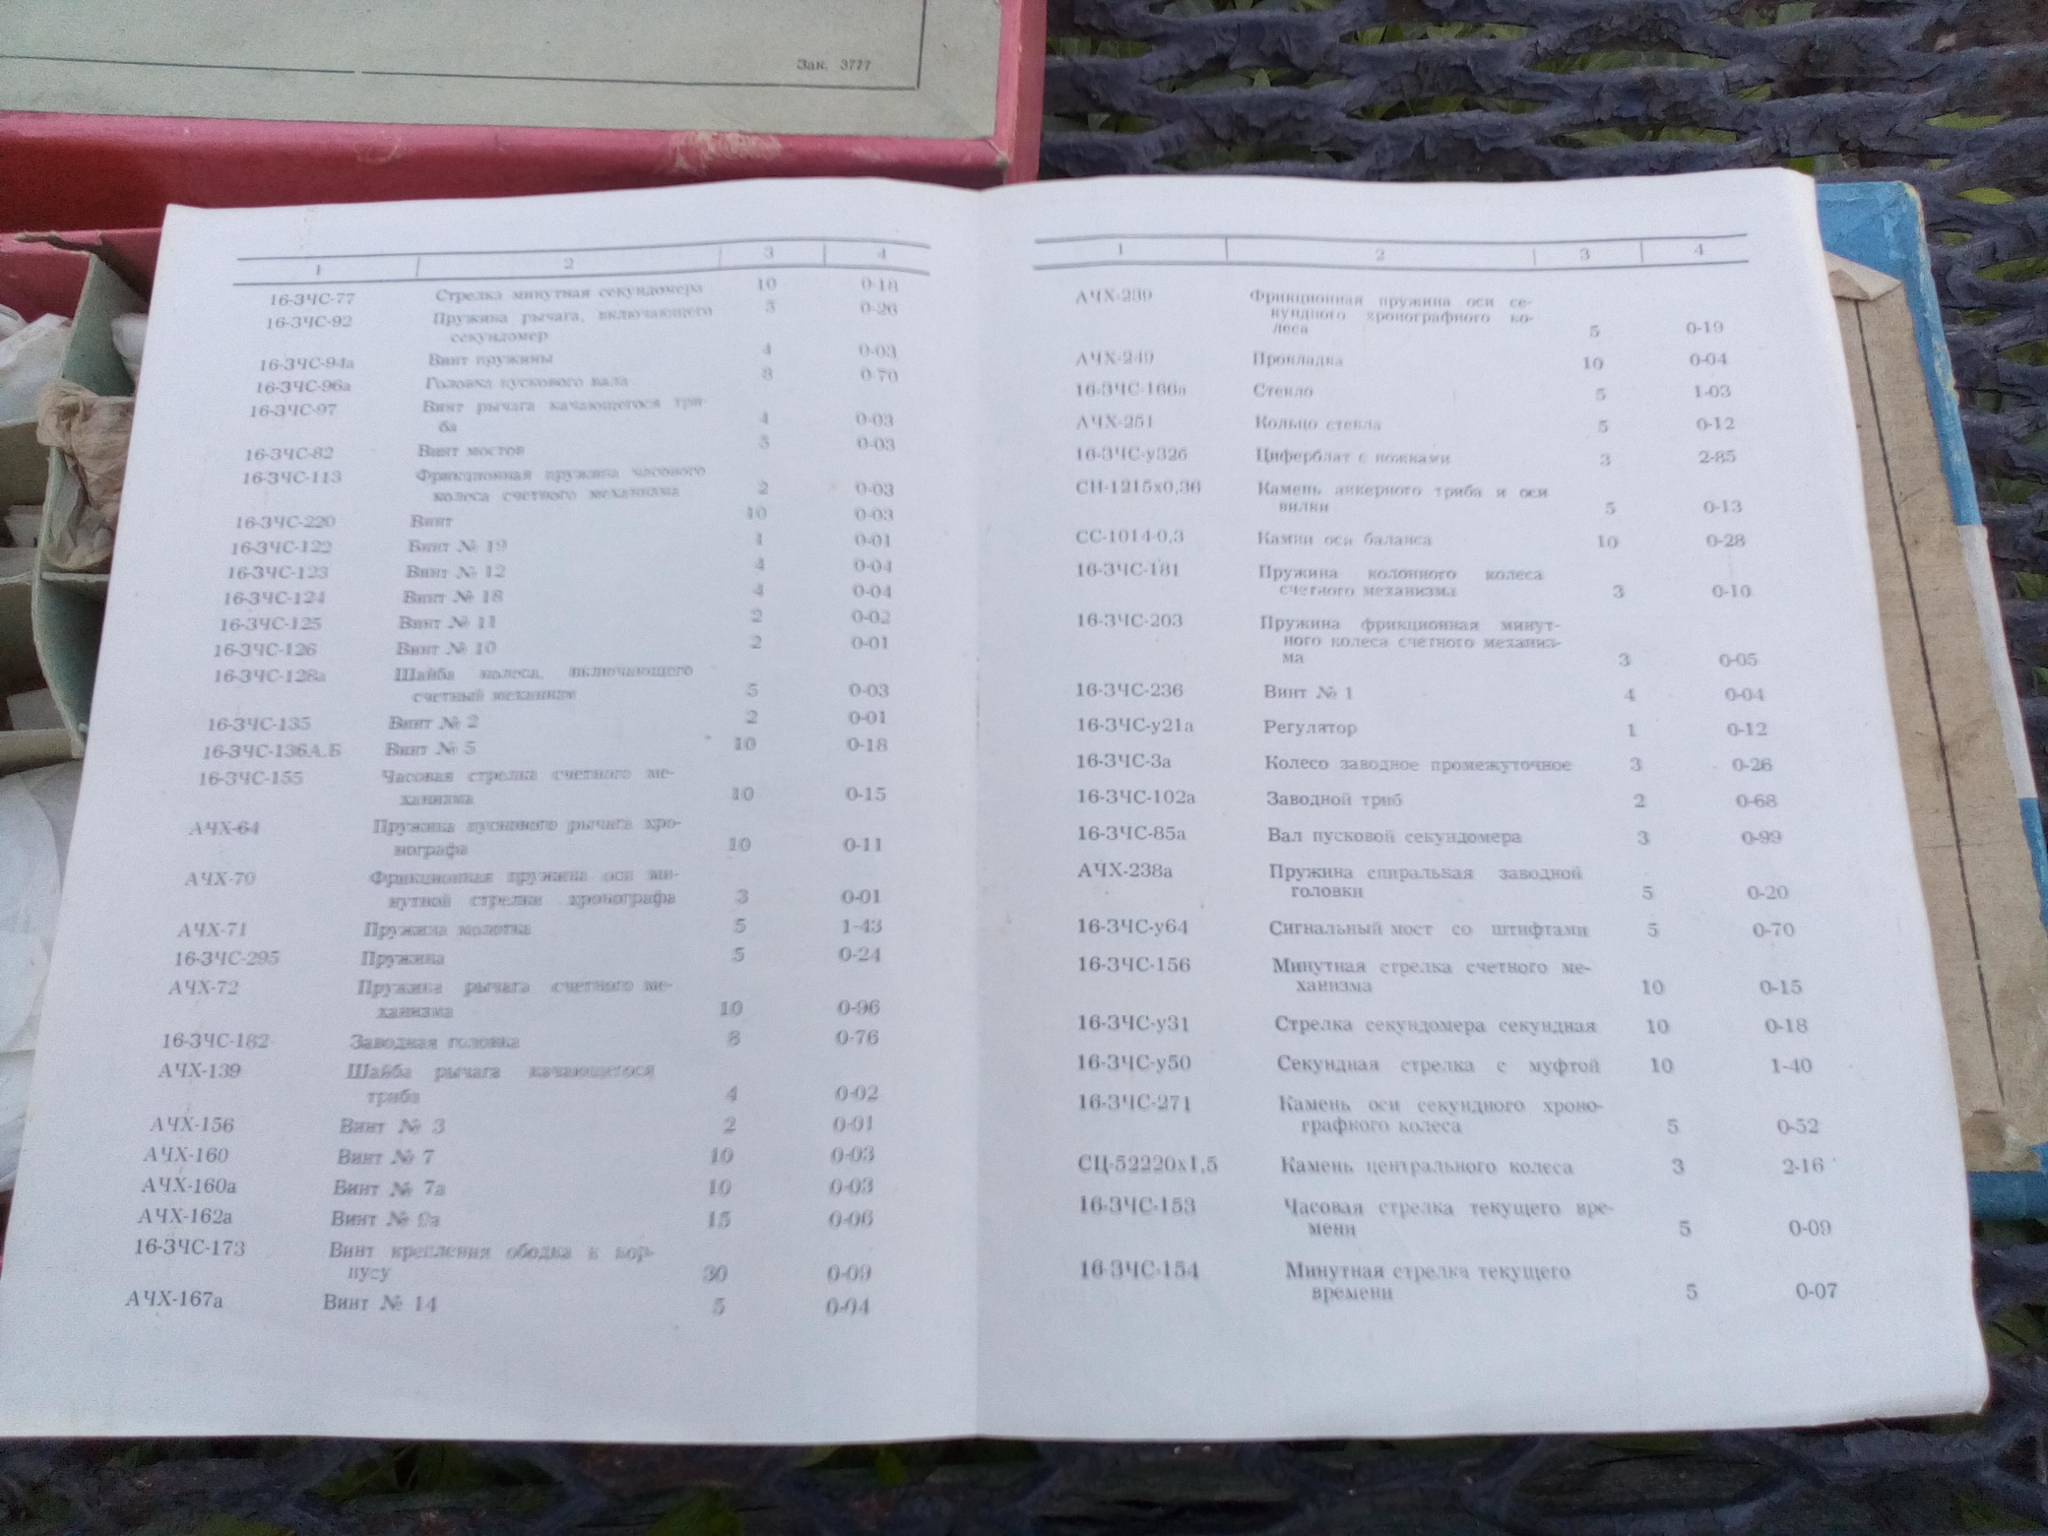 Зак. 3777
1 2 3 4
16-ЗЧС-77 Стрелка минутная секундомера 10 0-18
16-ЗЧС-92 Пружина рычага, включающего 5 0-26
секундомер
16-ЗЧС-94а Винт пружины 4 0-03
16-ЗЧС-96а Головка пускового вала 8 0-70
16-ЗЧС-97 Винт рычага качающегося три-
ба 4 0-03
16-ЗЧС-82 Винт мостов 5 0-03
16-ЗЧС-113 Фрикционная пружина часового
колеса счетного механизма 2 0-03
16-ЗЧС-220 Винт 10 0-03
16-ЗЧС-122 Винт № 19 1 0-01
16-ЗЧС-123 Винт № 12 4 0-04
16-ЗЧС-124 Винт № 18 4 0-04
16-ЗЧС-125 Винт № 11 2 0-02
16-ЗЧС-126 Винт № 10 2 0-01
16-ЗЧС-128а Шайба колеса, включающего
счетный механизм 5 0-03
16-ЗЧС-135 Винт № 2 2 0-01
16-ЗЧС-136А.Б Винт № 5 10 0-18
16-ЗЧС-155 Часовая стрелка счетного ме-
ханизма 10 0-15
АЧХ-64 Пружина пускового рычага хро-
нографа 10 0-11
АЧХ-70 Фрикционная пружина оси ми-
нутной стрелки хронографа 3 0-01
АЧХ-71 Пружина молотка 5 1-43
16-ЗЧС-295 Пружина 5 0-24
АЧХ-72 Пружина рычага счетного ме-
ханизма 10 0-96
16-ЗЧС-182 Заводная головка 8 0-76
АЧХ-139 Шайба рычага качающегося
триба 4 0-02
АЧХ-156 Винт № 3 2 0-01
АЧХ-160 Винт № 7 10 0-03
АЧХ-160а Винт № 7а 10 0-03
АЧХ-162а Винт № 9а 15 0-06
16-ЗЧС-173 Винт крепления ободка к кор-
пусу 30 0-09
АЧХ-167а Винт № 14 5 0-04
1 2 3 4
АЧХ-239 Фрикционная пружина оси се-
кундного хронографного ко-
леса 5 0-19
АЧХ-249 Прокладка 10 0-04
16-ЗЧС-166а Стекло 5 1-03
АЧХ-251 Кольцо стекла 5 0-12
16-ЗЧС-у32б Циферблат с ножками 3 2-85
СН-1215х0,36 Камень анкерного триба и оси
вилки 5 0-13
СС-1014-0,3 Камни оси баланса 10 0-28
16-ЗЧС-181 Пружина колонного колеса
счетного механизма 3 0-10
16-ЗЧС-203 Пружина фрикционная минут-
ного колеса счетного механиз-
ма 3 0-05
16-ЗЧС-236 Винт № 1 4 0-04
16-ЗЧС-у21а Регулятор 1 0-12
16-ЗЧС-3а Колесо заводное промежуточное 3 0-26
16-ЗЧС-102а Заводной триб 2 0-68
16-ЗЧС-85а Вал пусковой секундомера 3 0-99
АЧХ-238а Пружина спиральная заводной
головки 5 0-20
16-ЗЧС-у64 Сигнальный мост со штифтами 5 0-70
16-ЗЧС-156 Минутная стрелка счетного ме-
ханизма 10 0-15
16-ЗЧС-у31 Стрелка секундомера секундная 10 0-18
16-ЗЧС-у50 Секундная стрелка с муфтой 10 1-40
16-ЗЧС-271 Камень оси секундного хроно-
графного колеса 5 0-52
СЦ-52220х1,5 Камень центрального колеса 3 2-16
16-ЗЧС-153 Часовая стрелка текущего вре-
мени 5 0-09
16-ЗЧС-154 Минутная стрелка текущего
времени 5 0-07